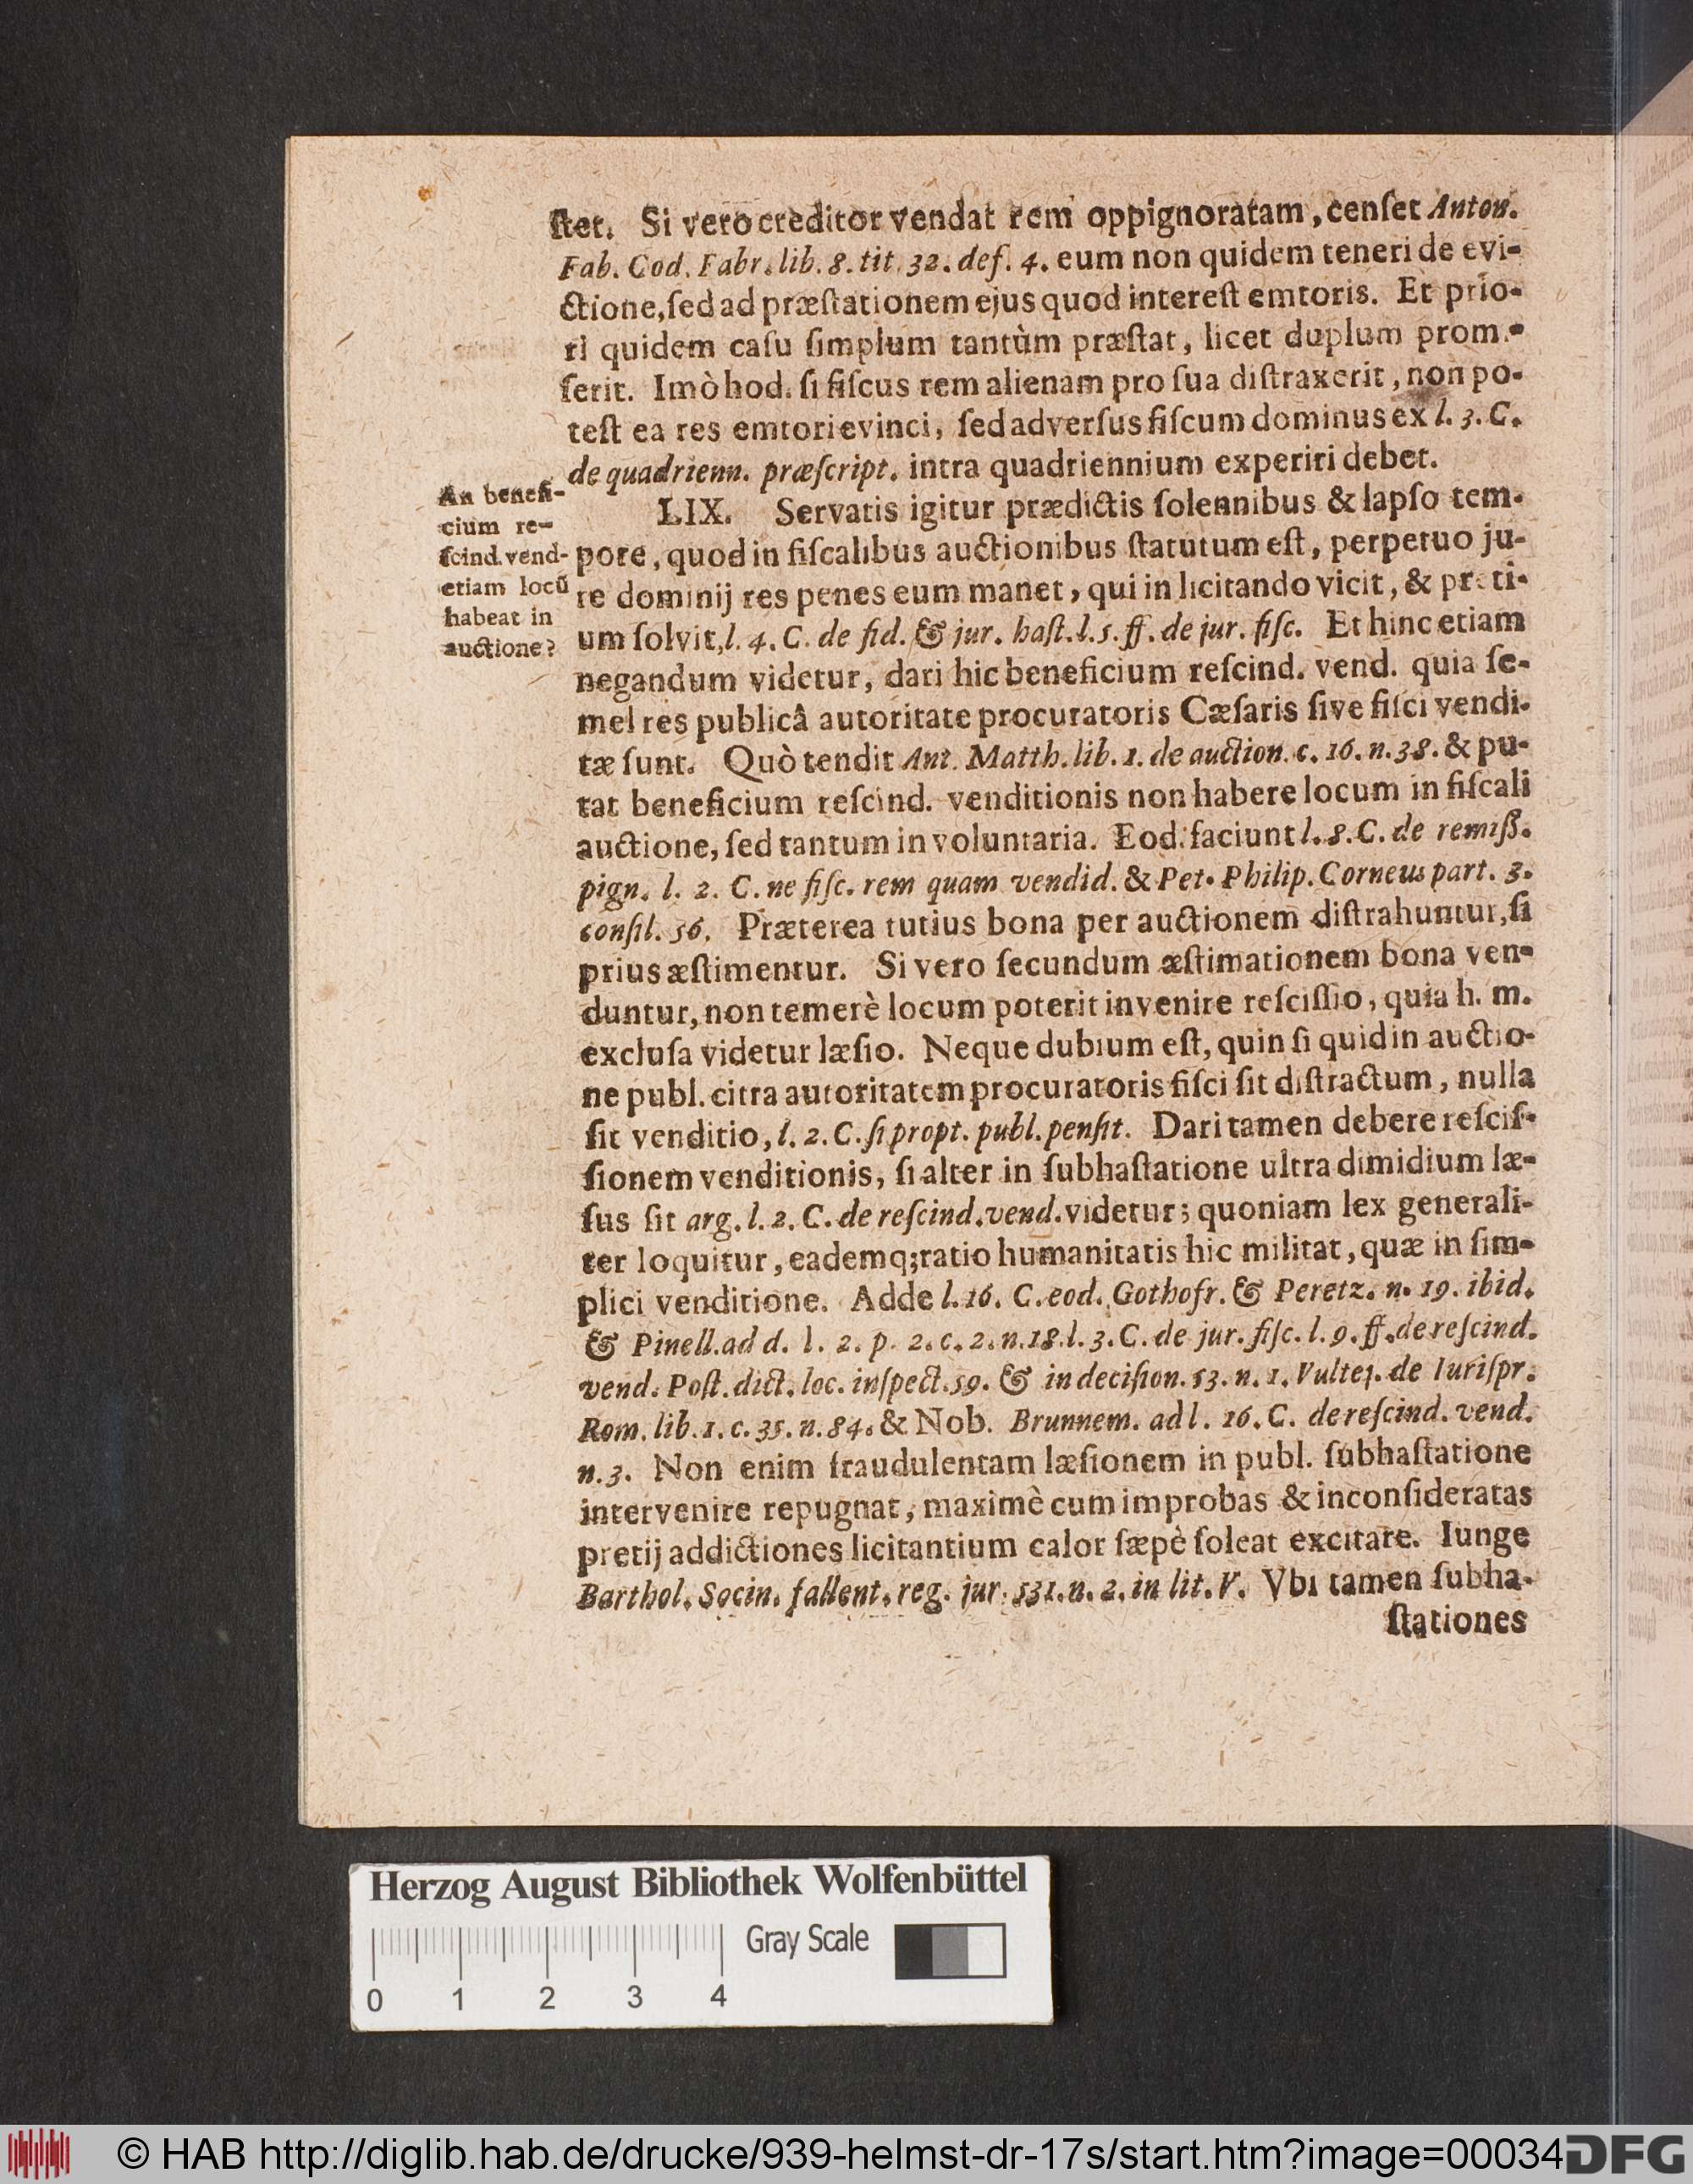 ſtet. Si vero creditor vendat rem oppignoratam, cenſet Anton.
Fab. Cod. Fabr. lib. 8. tit. 32. def. 4. eum non quidem teneri de evi-
ctione, ſed ad præſtationem ejus quod intereſt emtoris. Et prio-
ri quidem caſu ſimplum tantùm præſtat, licet duplum prom.-
ſerit. Imò hod. ſi fiſcus rem alienam pro ſua diſtraxerit, non po-
teſt ea res emtori evinci, ſed adverſus fiſcum dominus ex l. 3. C.
de quadrienn. præſcript. intra quadriennium experiri debet.
An benefi-
cium re-
ſcind. vend-
etiam locũ
habeat in
auctione?
LIX. Servatis igitur prædictis ſolennibus & lapſo tem-
pore, quod in fiſcalibus auctionibus ſtatutum eſt, perpetuo ju-
re dominij res penes eum manet, qui in licitando vicit, & preti-
um ſolvit, l. 4. C. de fid. & jur. haſt. l. 5. ff. de jur. fiſc. Et hinc etiam
negandum videtur, dari hic beneficium reſcind. vend. quia ſe-
mel res publicâ autoritate procuratoris Cæſaris ſive fiſci vendi-
tæ ſunt. Quò tendit Ant. Matth. lib. 1. de auction. c. 16. n. 38. & pu-
tat beneficium reſcind. venditionis non habere locum in fiſcali
auctione, ſed tantum in voluntaria. Eod. faciunt l. 8. C. de remiß.
pign. l. 2. C. ne fiſc. rem quam vendid. & Pet. Philip. Corneus part. 3.
conſil. 56. Præterea tutius bona per auctionem diſtrahuntur, ſi
prius æſtimentur. Si vero ſecundum æſtimationem bona ven-
duntur, non temerè locum poterit invenire reſciſſio, quia h. m.
excluſa videtur læſio. Neque dubium eſt, quin ſi quid in auctio-
ne publ. citra autoritatem procuratoris fiſci ſit diſtractum, nulla
ſit venditio, l. 2. C. ſi propt. publ. penſit. Dari tamen debere reſciſ-
ſionem venditionis, ſi alter in ſubhaſtatione ultra dimidium læ-
ſus ſit arg. l. 2. C. de reſcind. vend. videtur; quoniam lex generali-
ter loquitur, eademq; ratio humanitatis hic militat, quæ in ſim-
plici venditione. Adde l. 16. C. eod. Gothofr. & Peretz. n. 19. ibid.
& Pinell. ad d. l. 2. p. 2. c. 2. n. 18. l. 3. C. de jur. fiſc. l. 9. ff. de reſcind.
vend. Poſt. dict. loc. inſpect. 59. & in deciſion. 53. n. 1. Vultej. de Iuriſpr.
Rom. lib. 1. c. 35. n. 84. & Nob. Brunnem. ad l. 16. C. de reſcind. vend.
n. 3. Non enim fraudulentam læſionem in publ. ſubhaſtatione
intervenire repugnat, maximè cum improbas & inconſideratas
pretij addictiones licitantium calor ſæpè ſoleat excitare. Iunge
Barthol. Socin. fallent. reg. jur. 531. n. 2. in lit. V. Vbi tamen ſubha-
ſtationes
Herzog August Bibliothek Wolfenbüttel
Gray Scale
0 1 2 3 4
© HAB http://diglib.hab.de/drucke/939-helmst-dr-17s/start.htm?image=00034
DFG